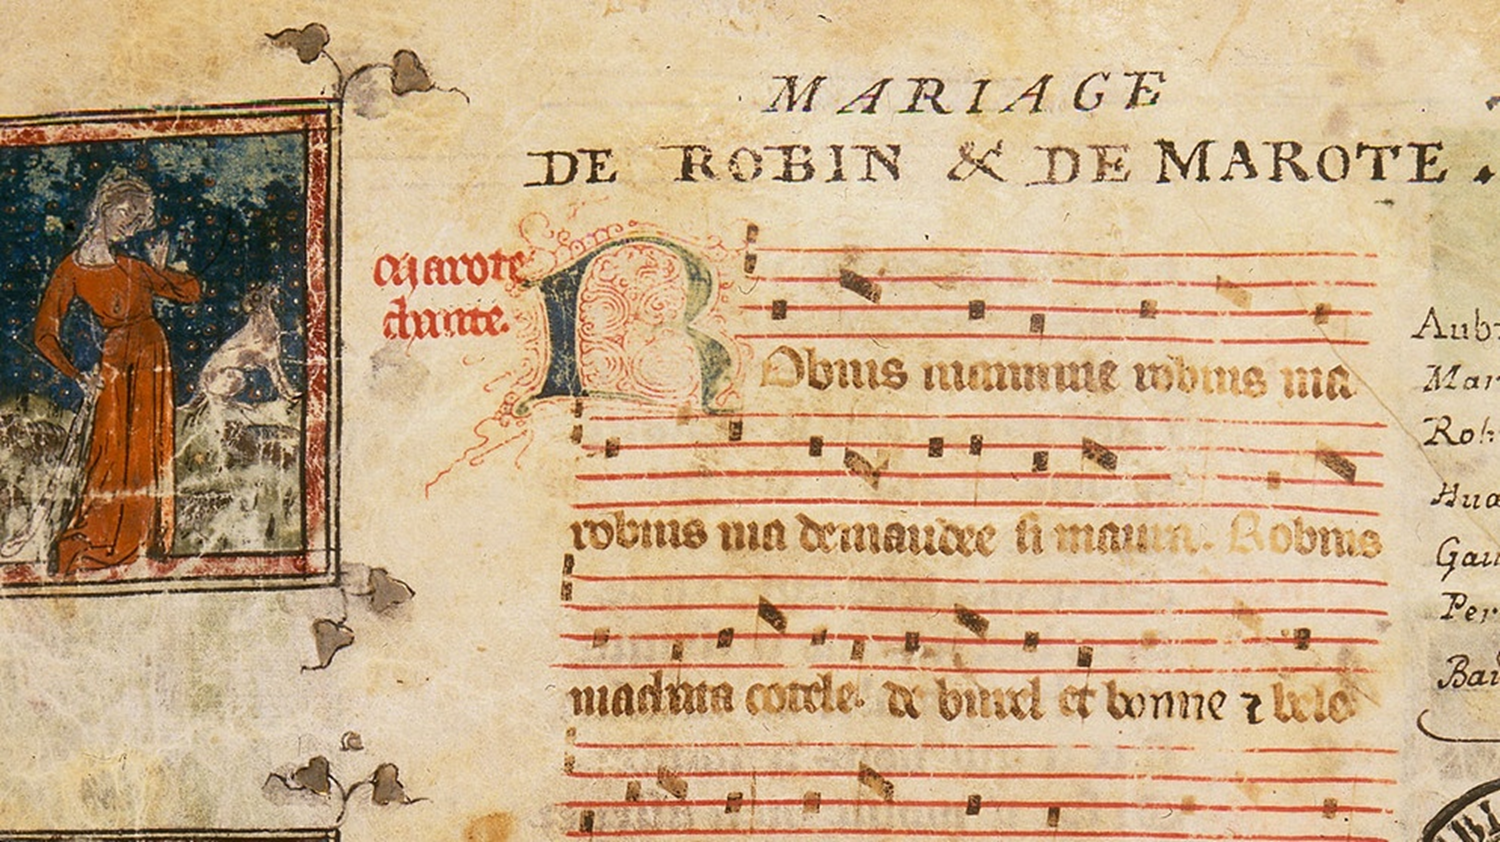 MARIAGE
DE ROBIN & DE MAROTE.
Marote
chante.
Robins mainme robins ma
robins ma demandee si maura. Robins
machata cotele. de burel et bonne ⁊ bele
Aub
Mar
Rob
Hua
Gau
Per
Bau